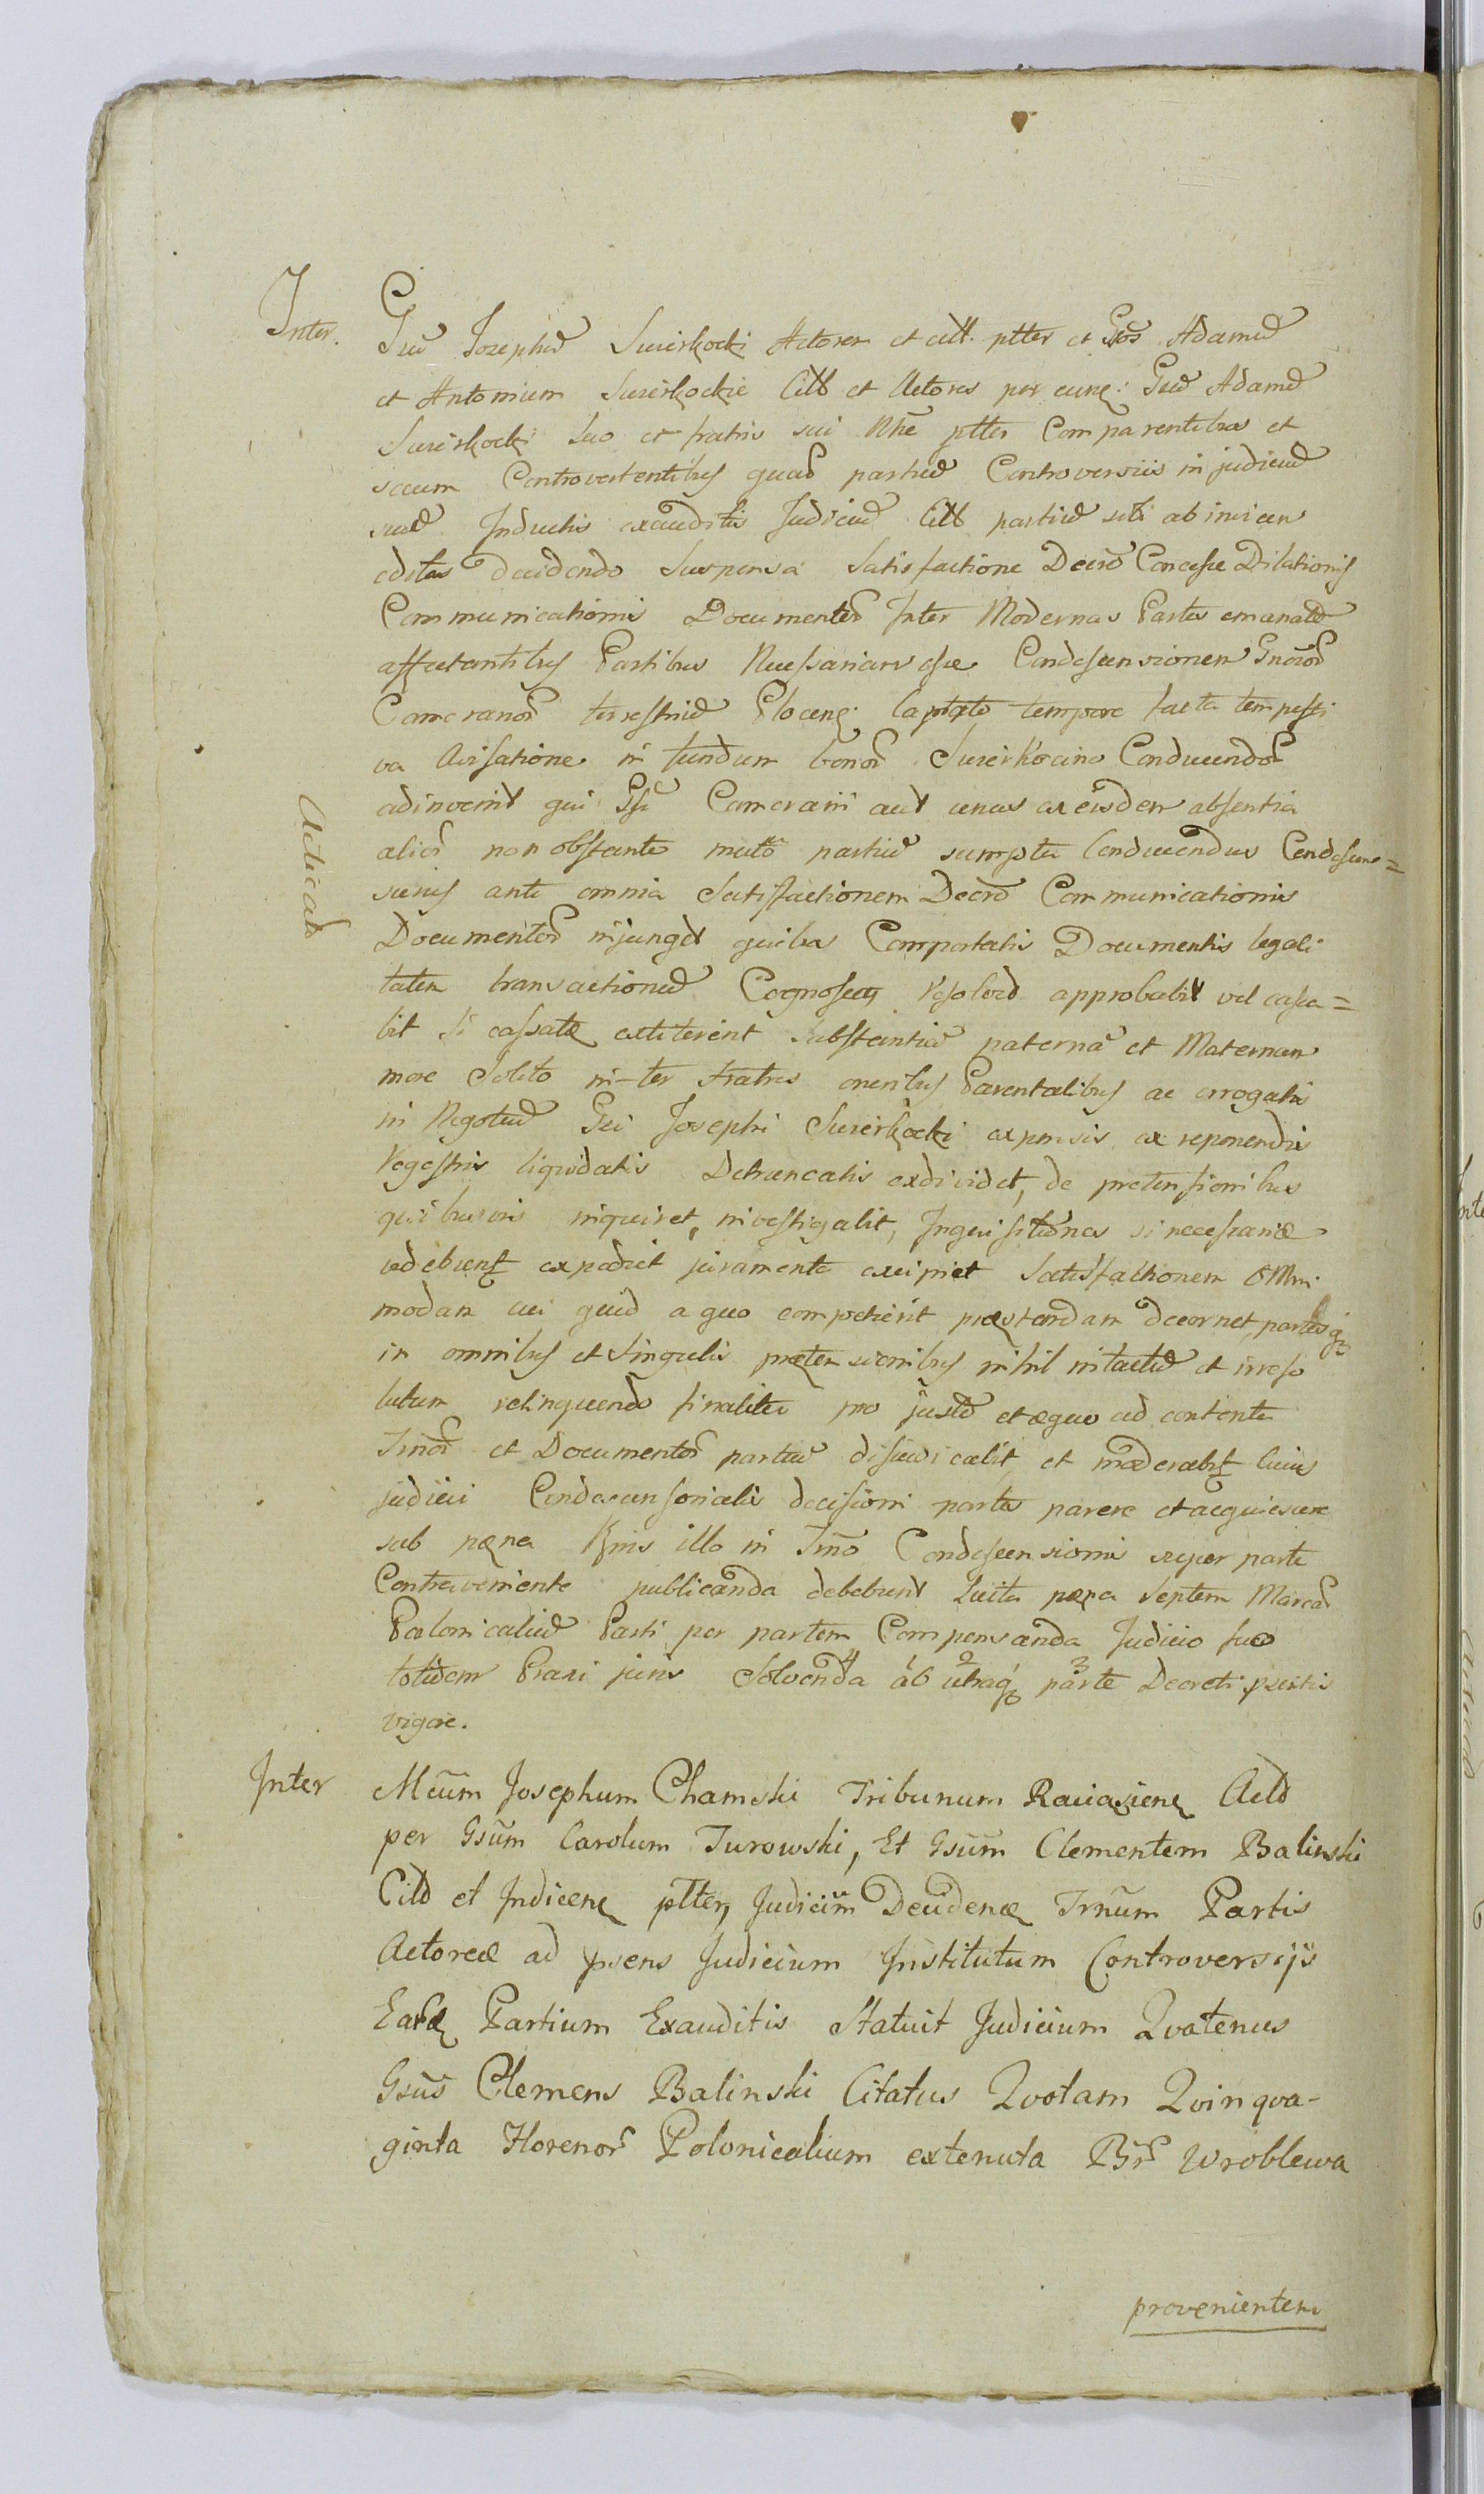 Inter. Gsum Josephum Swierkocki Actorem et citt. ptter et Gsos Adamum
et Antonium Swierkockie Citt et Actores per eunq: Gsum Adamum
Swierkocki suo et fratris sui Nne ptter Comparentibus et
secum Controvertentibus quar partium Controversiis in judicium
suum Inductis exauditis Judicium Citt partium sibi ab invicem
editas decidendo Suspensa Satisfactione Decreto Concessae Dilationis
Communicationis Documentor Inter Modernas Partes emanato
affectantibus Partibus Necessariam esse Condescensionem Gnoror
Cameranor terrestrium Plocens: Captato tempore facta tempesti
va Avisatione in fundum bonor Swierkocino Conducendor
adinvenit qui Gsi Camerarii aut unus ex eisdem absentia
alior non obstante mutuo partium sumptu Conducendus Condescen=
surus ante omnia Satisfactionem Decreto Communicationis
Documentor injunget quibus Comportatis Documentis legali
tatem transactionum Cognoscet resolvet approbabit vel cassa=
bit si cassatae extiterint Substantiam paternam et Maternam
more Solito in-ter fratres oneribus Parentalibus ac errogatis
in Negotium Gsi Josephi Swierkocki expensis ex reponendis
Regestris liquidatis Detruncatis exdividet, de pretensionibus
quibusvis inquiret, investigabit, Inquisitiones si necessariae
videbuntur expediet juramenta excipiet Satisfactionem Omni
modam cui quid a quo competierit praestandam decernet partesq
in omnibus et Singulis praetensionibus nihil intactum et irreso
lutum relinquendo finaliter pro justo et aequo ad contenta
Trmor et Documentor partium disjudicabit et moderabit cuius
judicii Condescensorialis decisioni partes parere et acquiescere
sub paena Bnnis illo in Trmo Condescensionis super parte
Contraveniente publicanda debebunt Luita paena Septem Marcar
Polonicalium Parti per partem Compensanda Judicio suo
totidem Praxi juris Solvenda ab utraq parte Decreti psentis
vigore.
Inter Mcum Josephum Chamski Tribunum Raciasiens Actt
per Gsum Carolum Turowski, Et Gsum Clementem Balinski
Citt et Indicens ptter, Judicium Decidendo Trnum Partis
Actoreae ad psens Judicium Institutum Controversijs
Earde Partium Exauditis Statuit Judicium Quatenus
Gsus Clemens Balinski Citatus Quotam Quinqua-
ginta Florenor Polonicalium extenuta Bnr Wroblewa
provenientem
Acticat